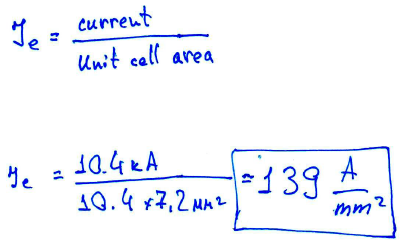 J_e = current / Unit cell area
J_e = 10.4 кA / 10.4 × 7,2 мм² ≈ 139 A/mm²